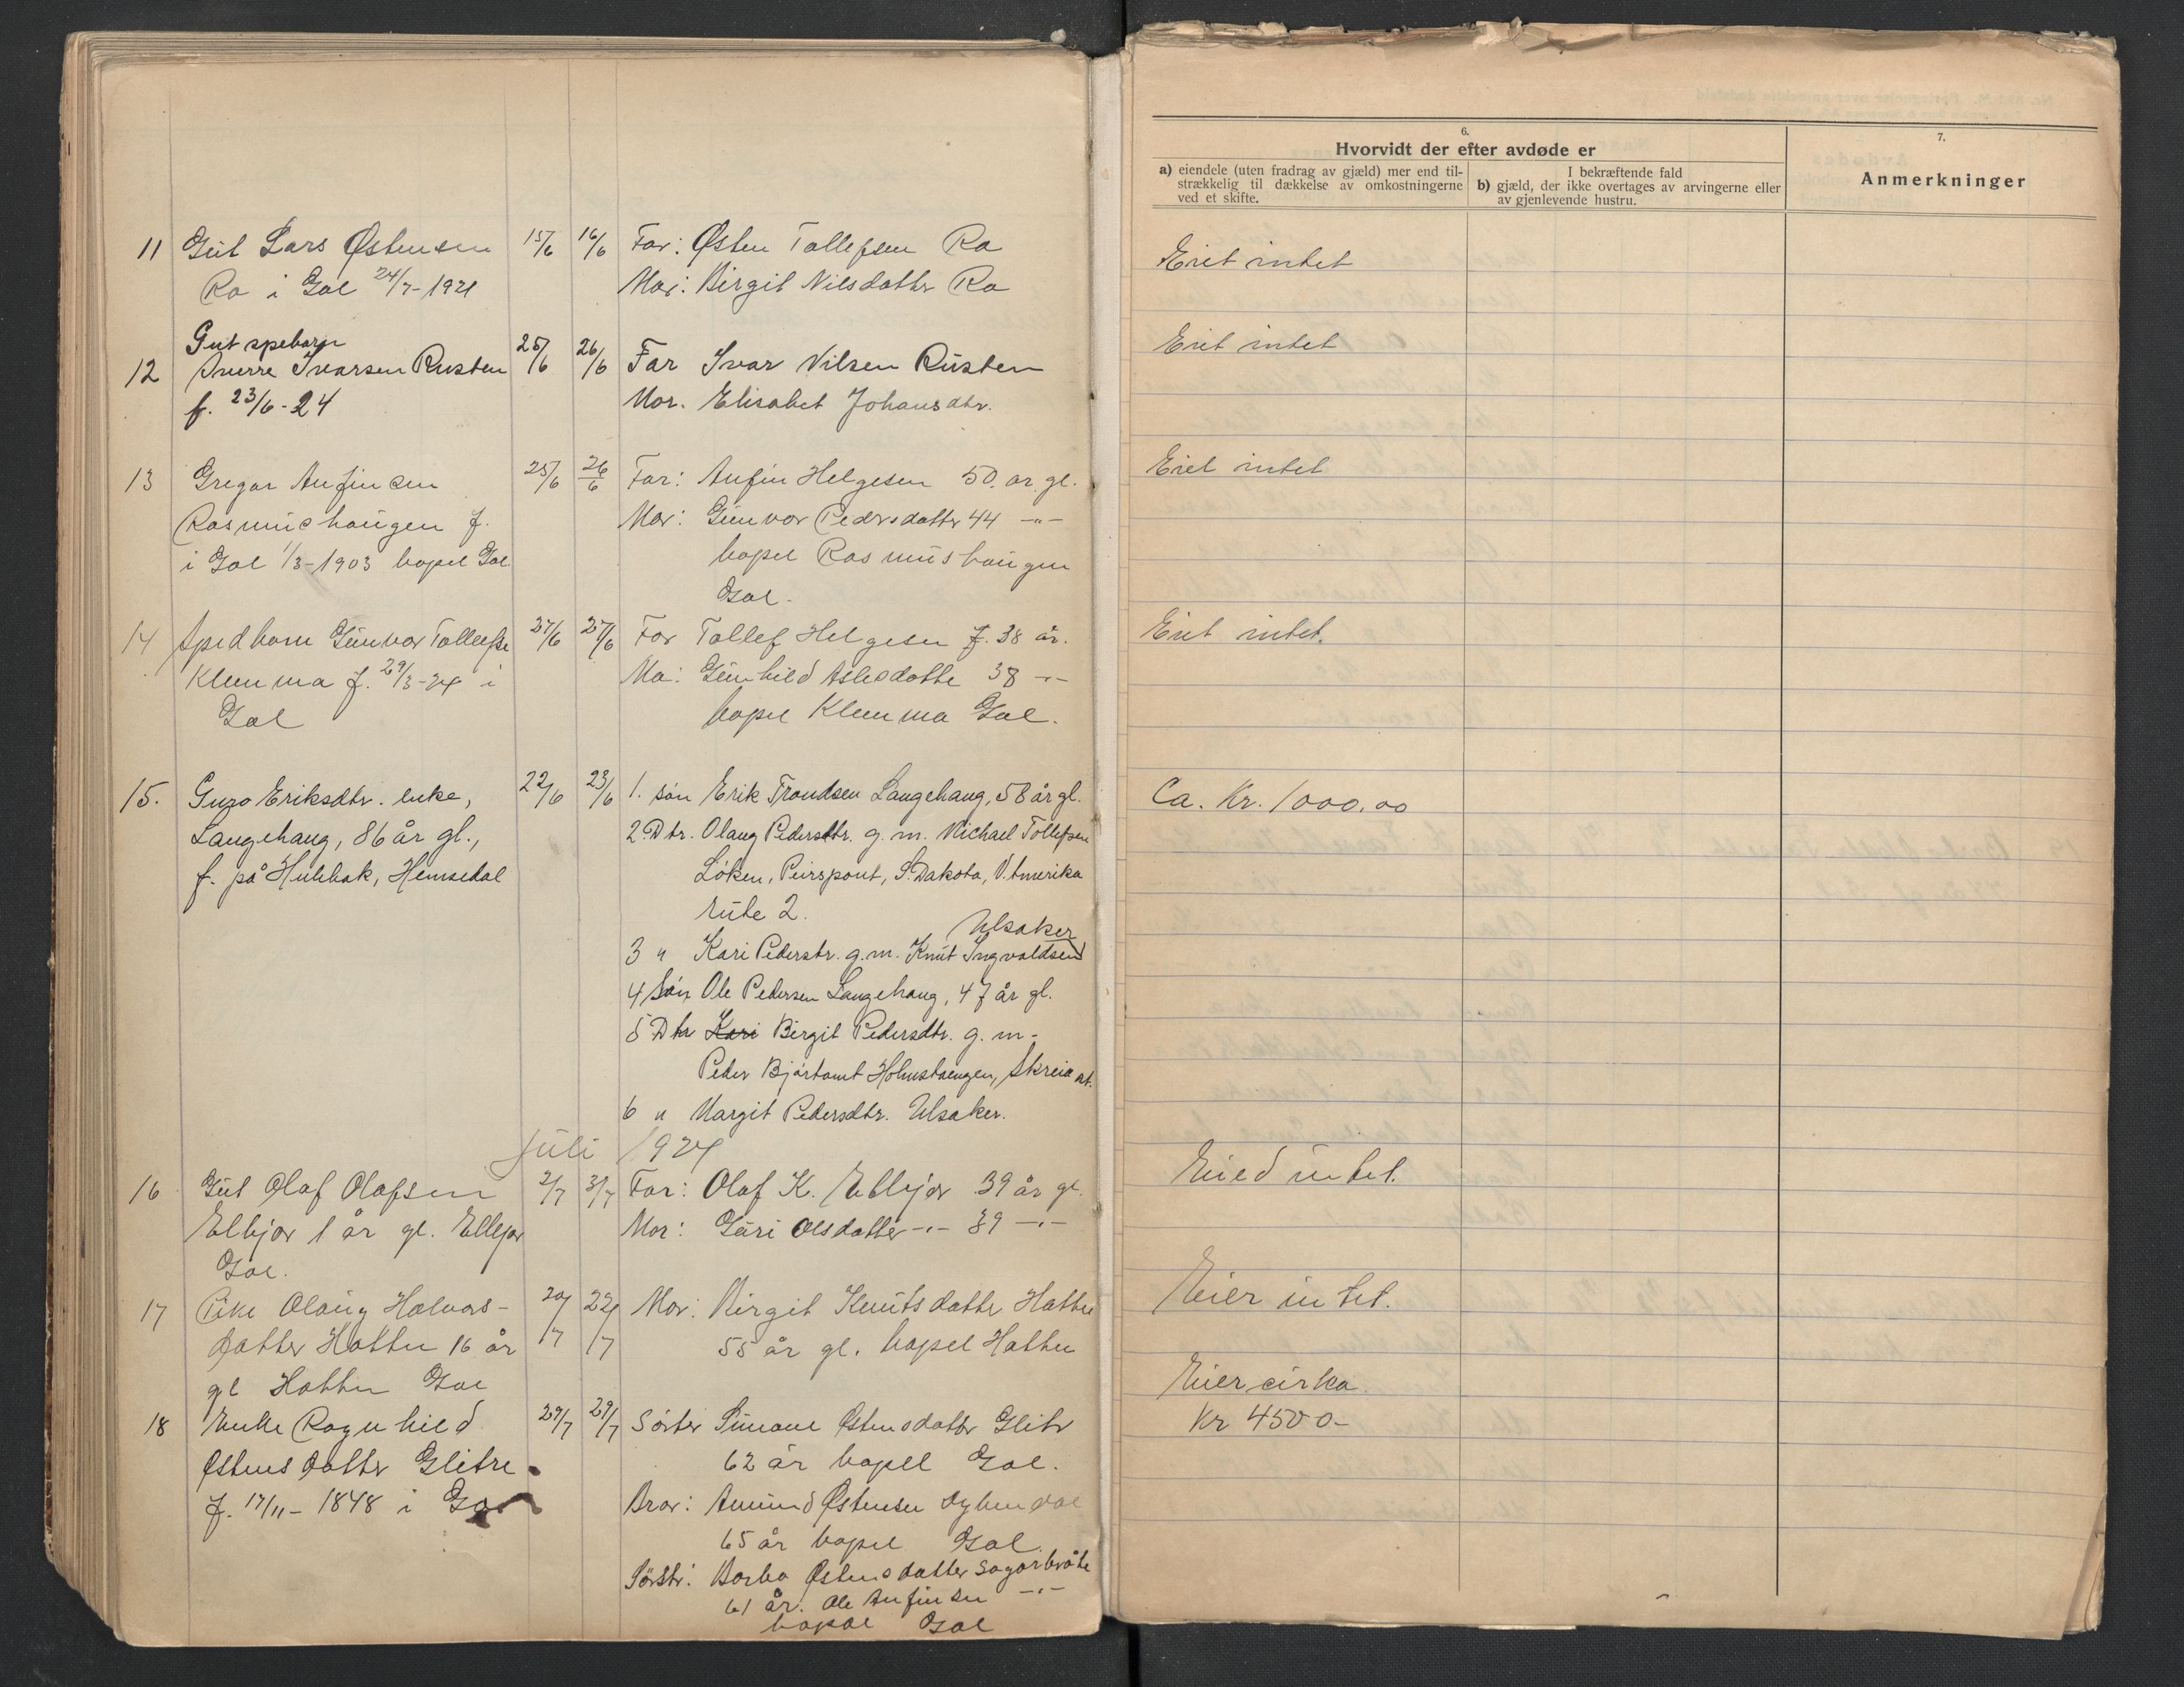 11 Gut Lars Østensen 15/6 16/6 Far: Østen Tollefsen Ro
Ro i Gol 24/7-1921 Mor: Birgit Nilsdatter Ro
Gut spebarn
12 Sverre Ivarsen Rusten 25/6 26/6 Far Ivar Nilsen Rusten
f. 23/6-24 Mor. Elisabet Johansdtr.
13 Gregar Anfinsen 25/6 26/6 Far: Anfin Helgesen 50. år gl.
Rasmushaugen f. Mor: Gunvor Pedersdatter 44 -"-
i Gol 1/3-1903 bopel Gol bopel Rasmushaugen
Gol.
14 Spedbarn Gunvor Tollefs 27/6 27/6 Far Tollef Helgesen f. 38 år.
Klemma f. 29/3-24 i Mo: Gunhild Aslesdatte 38 -"-
Gol bopel Klemma Gol.
15. Guro Eriksdtr. enke, 22/6 23/6 1. søn Erik Trondsen Langehaug, 58 år gl.
Langehaug, 86 år gl., 2 Dtr. Olaug Pedersdtr. g. m. Michael Tollefsen
f. på Hulebak, Hemsedal Löken, Peirspont, S. Dakota, N. Amerika
rute 2.
Ulsaker
3 " Kari Pederstr. g.m. Knut Ingvaldsen
4 Søn Ole Pedersen Langehaug, 47 år gl.
5 Dtr Kari Birgit Pedersdtr. g. m.
Peder Bjørtomt Holmstaengen, Skreia st.
6 " Margit Pedersdtr. Ulsaker.
Juli 1924
16 Gut Olaf Olafsen 2/7 3/7 Far: Olaf K. Ellejor 39 år gl.
Ellejor 1 år gl. Ellejor Mor: Guri Olsdatter -"- 39 -"-
Gol.
17 Pike Olaug Halvors- 20/7 22/7 Mor: Birgit Knutsdatter Hatten
datter Hatten 16 år 55 år gl. bopel Hatten
gl Hatten Gol
18 Enke Ragnhild 29/7 29/7 Søster Simone Østensdatter Glitr
Østensdatter Glitre 62 år bopel Gol.
f. 17/11-1848 i Gol Bror: Amund Østensen
65 år bopel Gol.
Søstr: Barbo Østensdatter Sagarbråte
61 år. Ole Anfinsen -"-
bopel Gol
6.
Hvorvidt der efter avdøde er
a) eiendele (uten fradrag av gjæld) mer end til-
strækkelig til dækkelse av omkostningerne
ved et skifte.
I bekræftende fald
b) gjæld, der ikke overtages av arvingerne eller
av gjenlevende hustru.
7.
Anmerkninger
Eiet intet
Eiet intet
Eiet intet
Eiet intet.
Ca. Kr. 1000.00
Eied intet.
Eier intet.
Eier cirka
Kr 4500-